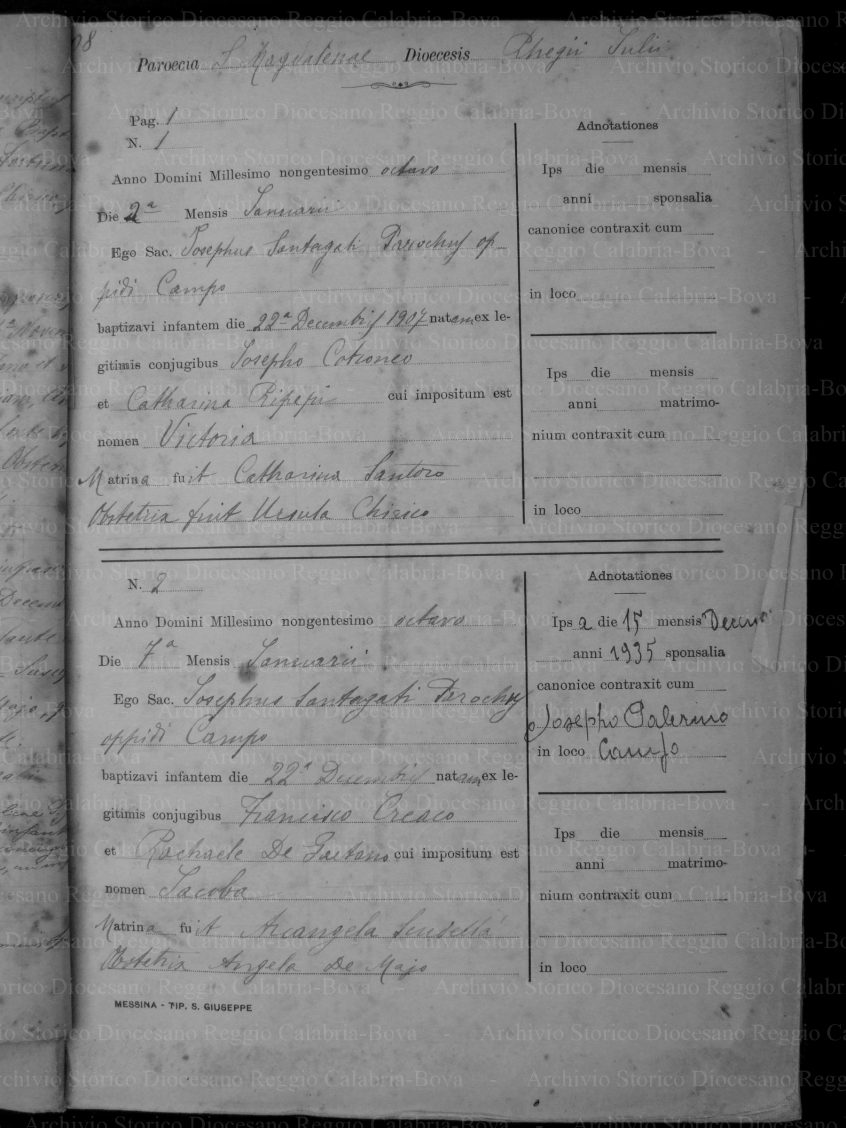 Paroecia S. Magdalenae Dioecesis Rhegii Iulii
Pag. 1
N. 1
Anno Domini Millesimo nongentesimo octavo
Die 2ª Mensis Ianuarii
Ego Sac. Iosephus Santagati Parochus op-
pidi Campo
baptizavi infantem die 22ª Decembris 1907 natam ex le-
gitimis conjugibus Iosepho Cotroneo
et Catharina Ripepi cui impositum est
nomen Victoria
Matrina fuit Catharina Santoro
Obstetrix fuit Ursula Chirico
Adnotationes
Ips die mensis
anni sponsalia
canonice contraxit cum
in loco
Ips die mensis
anni matrimo-
nium contraxit cum
in loco
N. 2
Anno Domini Millesimo nongentesimo octavo
Die 7ª Mensis Ianuarii
Ego Sac. Iosephus Santagati Parochus
oppidi Campo
baptizavi infantem die 22ª Decembris natam ex le-
gitimis conjugibus Francisco Creaco
et Rachaele De Gaetano cui impositum est
nomen Iacoba
Matrina fuit Arcangela
Obstetrix Angela De Majo
Adnotationes
Ips a die 15 mensis
anni 1935 sponsalia
canonice contraxit cum
Josepho Palermo
in loco Campo
Ips die mensis
anni matrimo-
nium contraxit cum
in loco
MESSINA - TIP. S. GIUSEPPE
Archivio Storico Diocesano Reggio Calabria-Bova